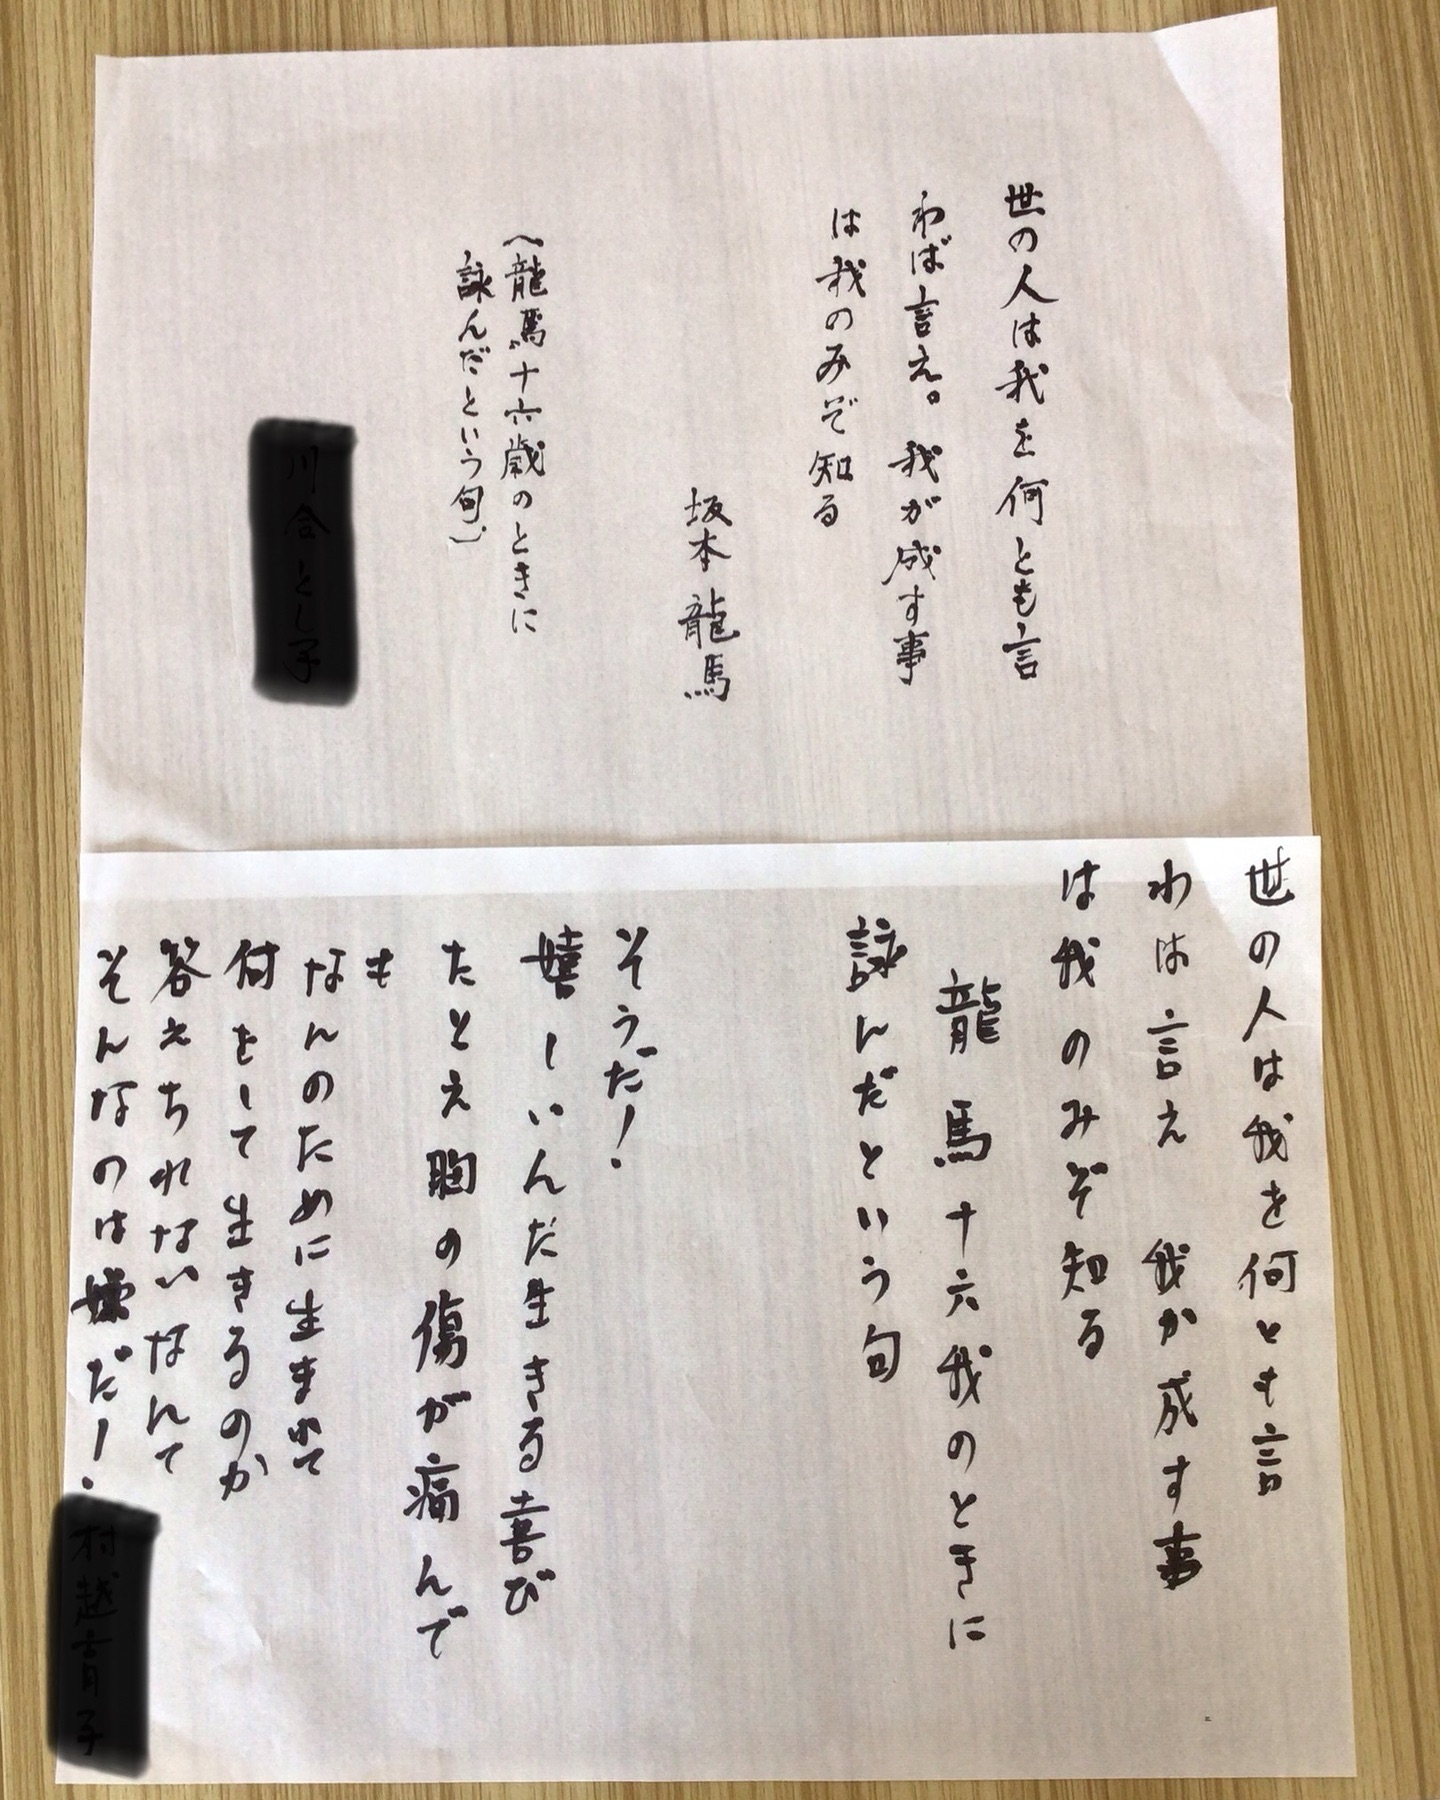 世の人は我を何とも言
わば言え。我が成す事
は我のみぞ知る
坂本龍馬
(龍馬十六歳のときに
詠んだという句)
世の人は我を何とも言
わは言え 我か成す事
は我のみぞ知る
龍馬十六我のときに
詠んだという句
そうだ!
嬉しいんだ生きる喜び
たとえ胸の傷が痛んで
も
なんのために生まれて
何をして生きるのか
答えられないなんて
そんなのは嫌だ!